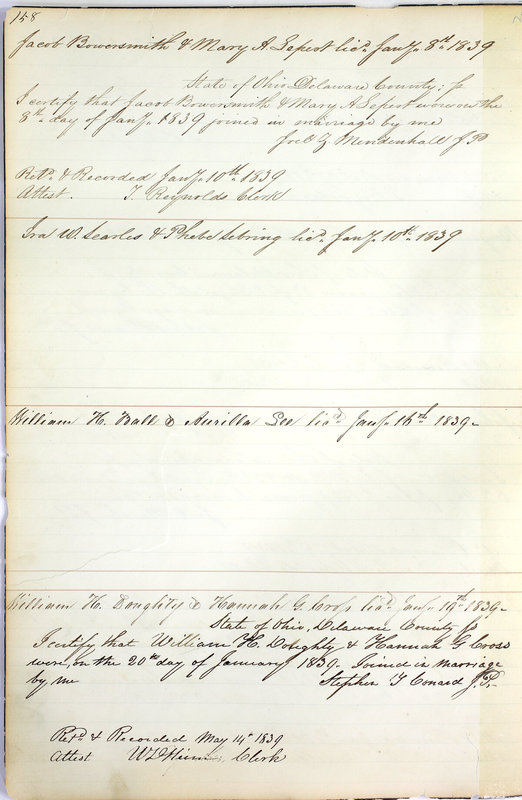 158
Jacob Bowersmith & Mary A. Sepest licd. Jany. 8th 1839
State of Ohio Delaware County: ss
I certify that Jacob Bowersmith & Mary A Sepest were on the
8th day of Jany. 1839 joined in marriage by me
Joel G Mendenhall J P
Retd. & Recorded Jany. 10th 1839
Attest. T. Reynolds Clerk
Ira W. Searles & Phebe Sebring licd. Jany. 10th 1839
William H. Ball & Aurilla Lee licd. Jany. 16th 1839-
William H. Doughty & Hannah G. Cross licd. Jany. 19th 1839-
State of Ohio, Delaware County ss
I certify that William H. Doughty & Hannah G Cross
were, on the 20th day of January 1839- Joined in Marriage
by me Stephen T Conard J.P.-
Retd. & Recorded May 14th 1839
Attest Clerk